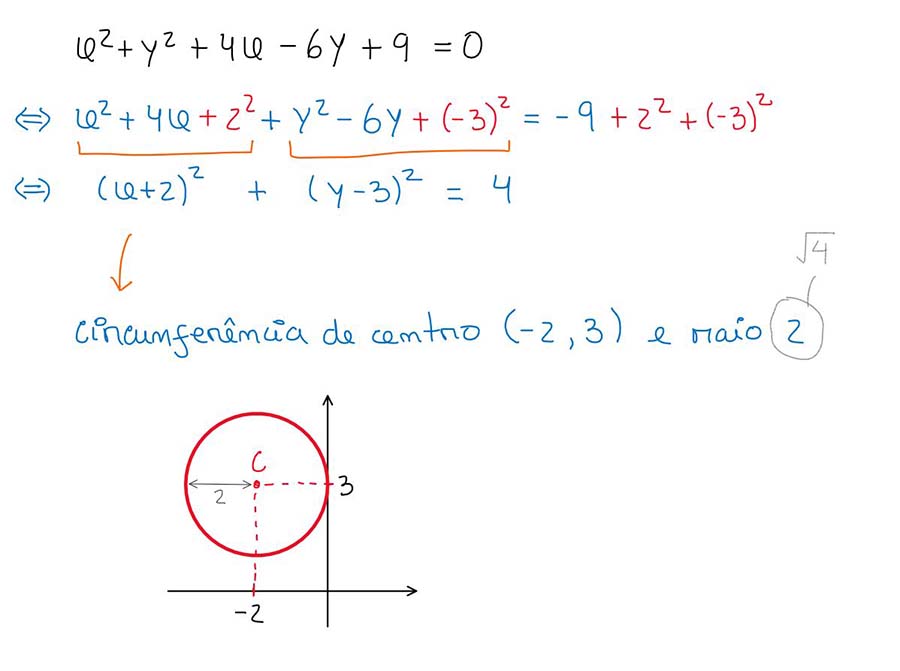 x² + y² + 4x - 6y + 9 = 0
⇔ x² + 4x + 2² + y² - 6y + (-3)² = -9 + 2² + (-3)²
⇔ (x+2)² + (y-3)² = 4
√4
circunferência de centro (-2, 3) e raio 2
C
2
3
-2